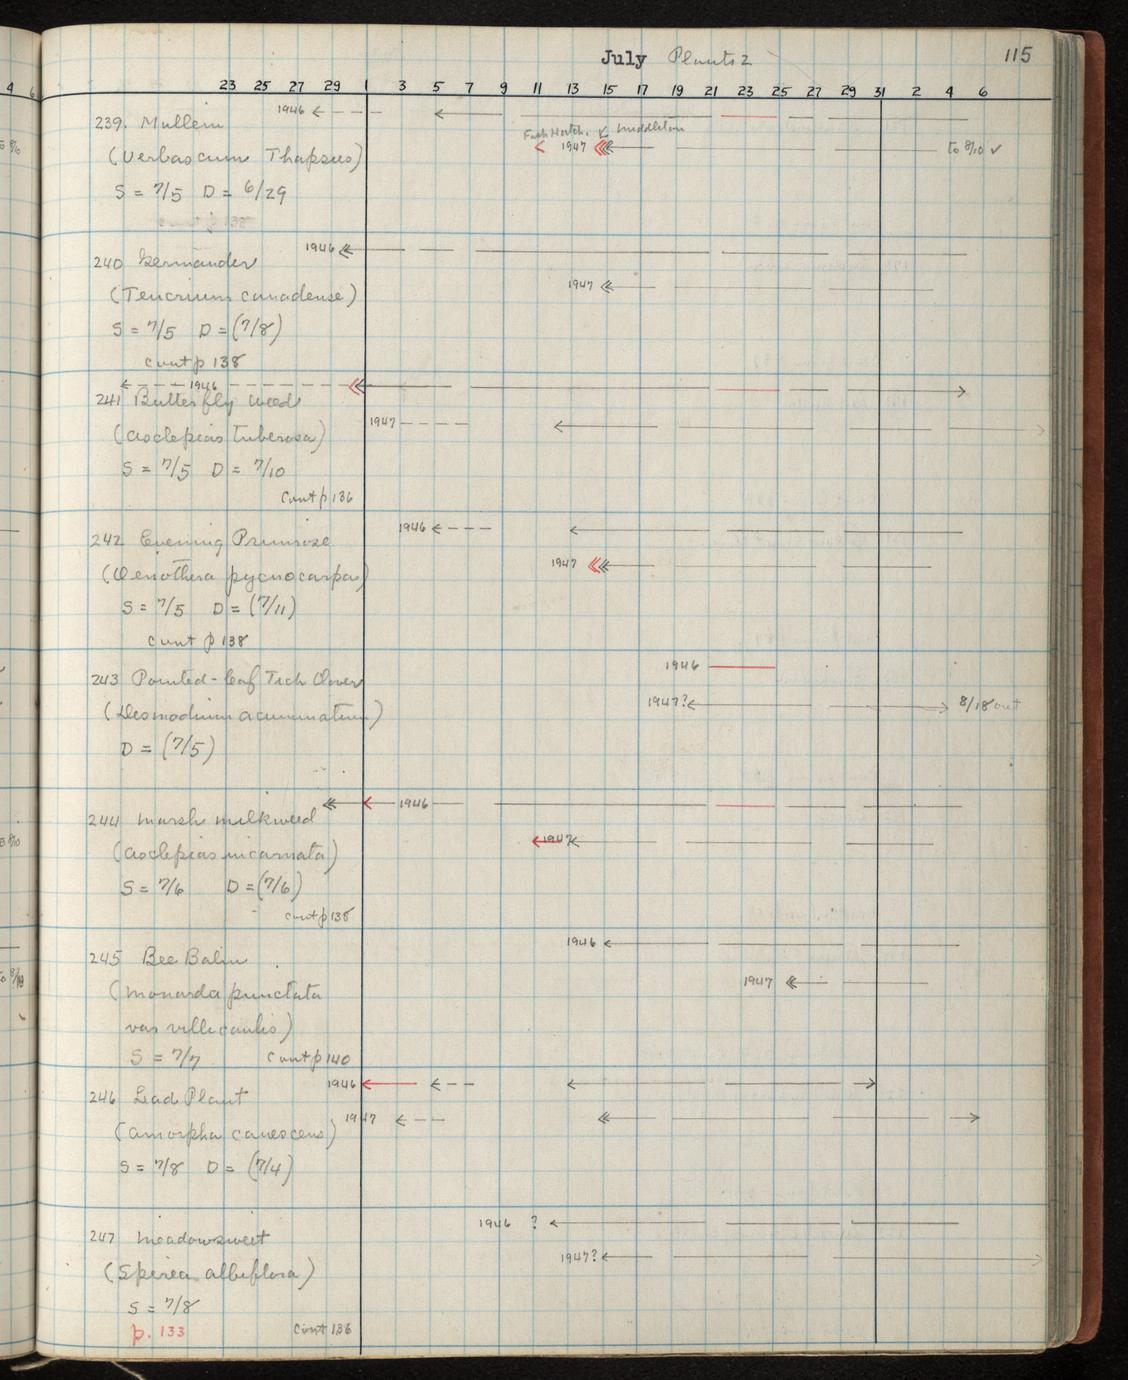 July Plants 2 115
4 6 23 25 27 29 1 3 5 7 9 11 13 15 17 19 21 23 25 27 29 31 2 4 6
1946
239. Mullein
Middleton
(Verbascum Thapsus)
1947
to 8/10 ✓
S = 7/5 D = 6/29
1946
240 Germander
(Teucrium canadense)
1947
S = 7/5 D = (7/8)
cont p 138
1946
241 Butterfly weed
1947
(Asclepias tuberosa)
S = 7/5 D = 7/10
Cont p 136
1946
242 Evening Primrose
1947
(Oenothera pycnocarpa)
S = 7/5 D = (7/11)
cont p 138
1946
243 Pointed-leaf Tick Clover
1947?
8/18 out
(Desmodium acuminatum)
D = (7/5)
1946
244 Marsh milkweed
1947
(Asclepias incarnata)
S = 7/6 D = (7/6)
cont p 138
1946
245 Bee Balm
1947
(Monarda punctata
var villicaulis)
S = 7/7 Cont p 140
1946
246 Lead Plant
1947
(Amorpha canescens)
S = 7/8 D = (7/4)
1946 ?
247 Meadowsweet
1947?
(Spirea albiflora)
S = 7/8
p. 133 Cont 136